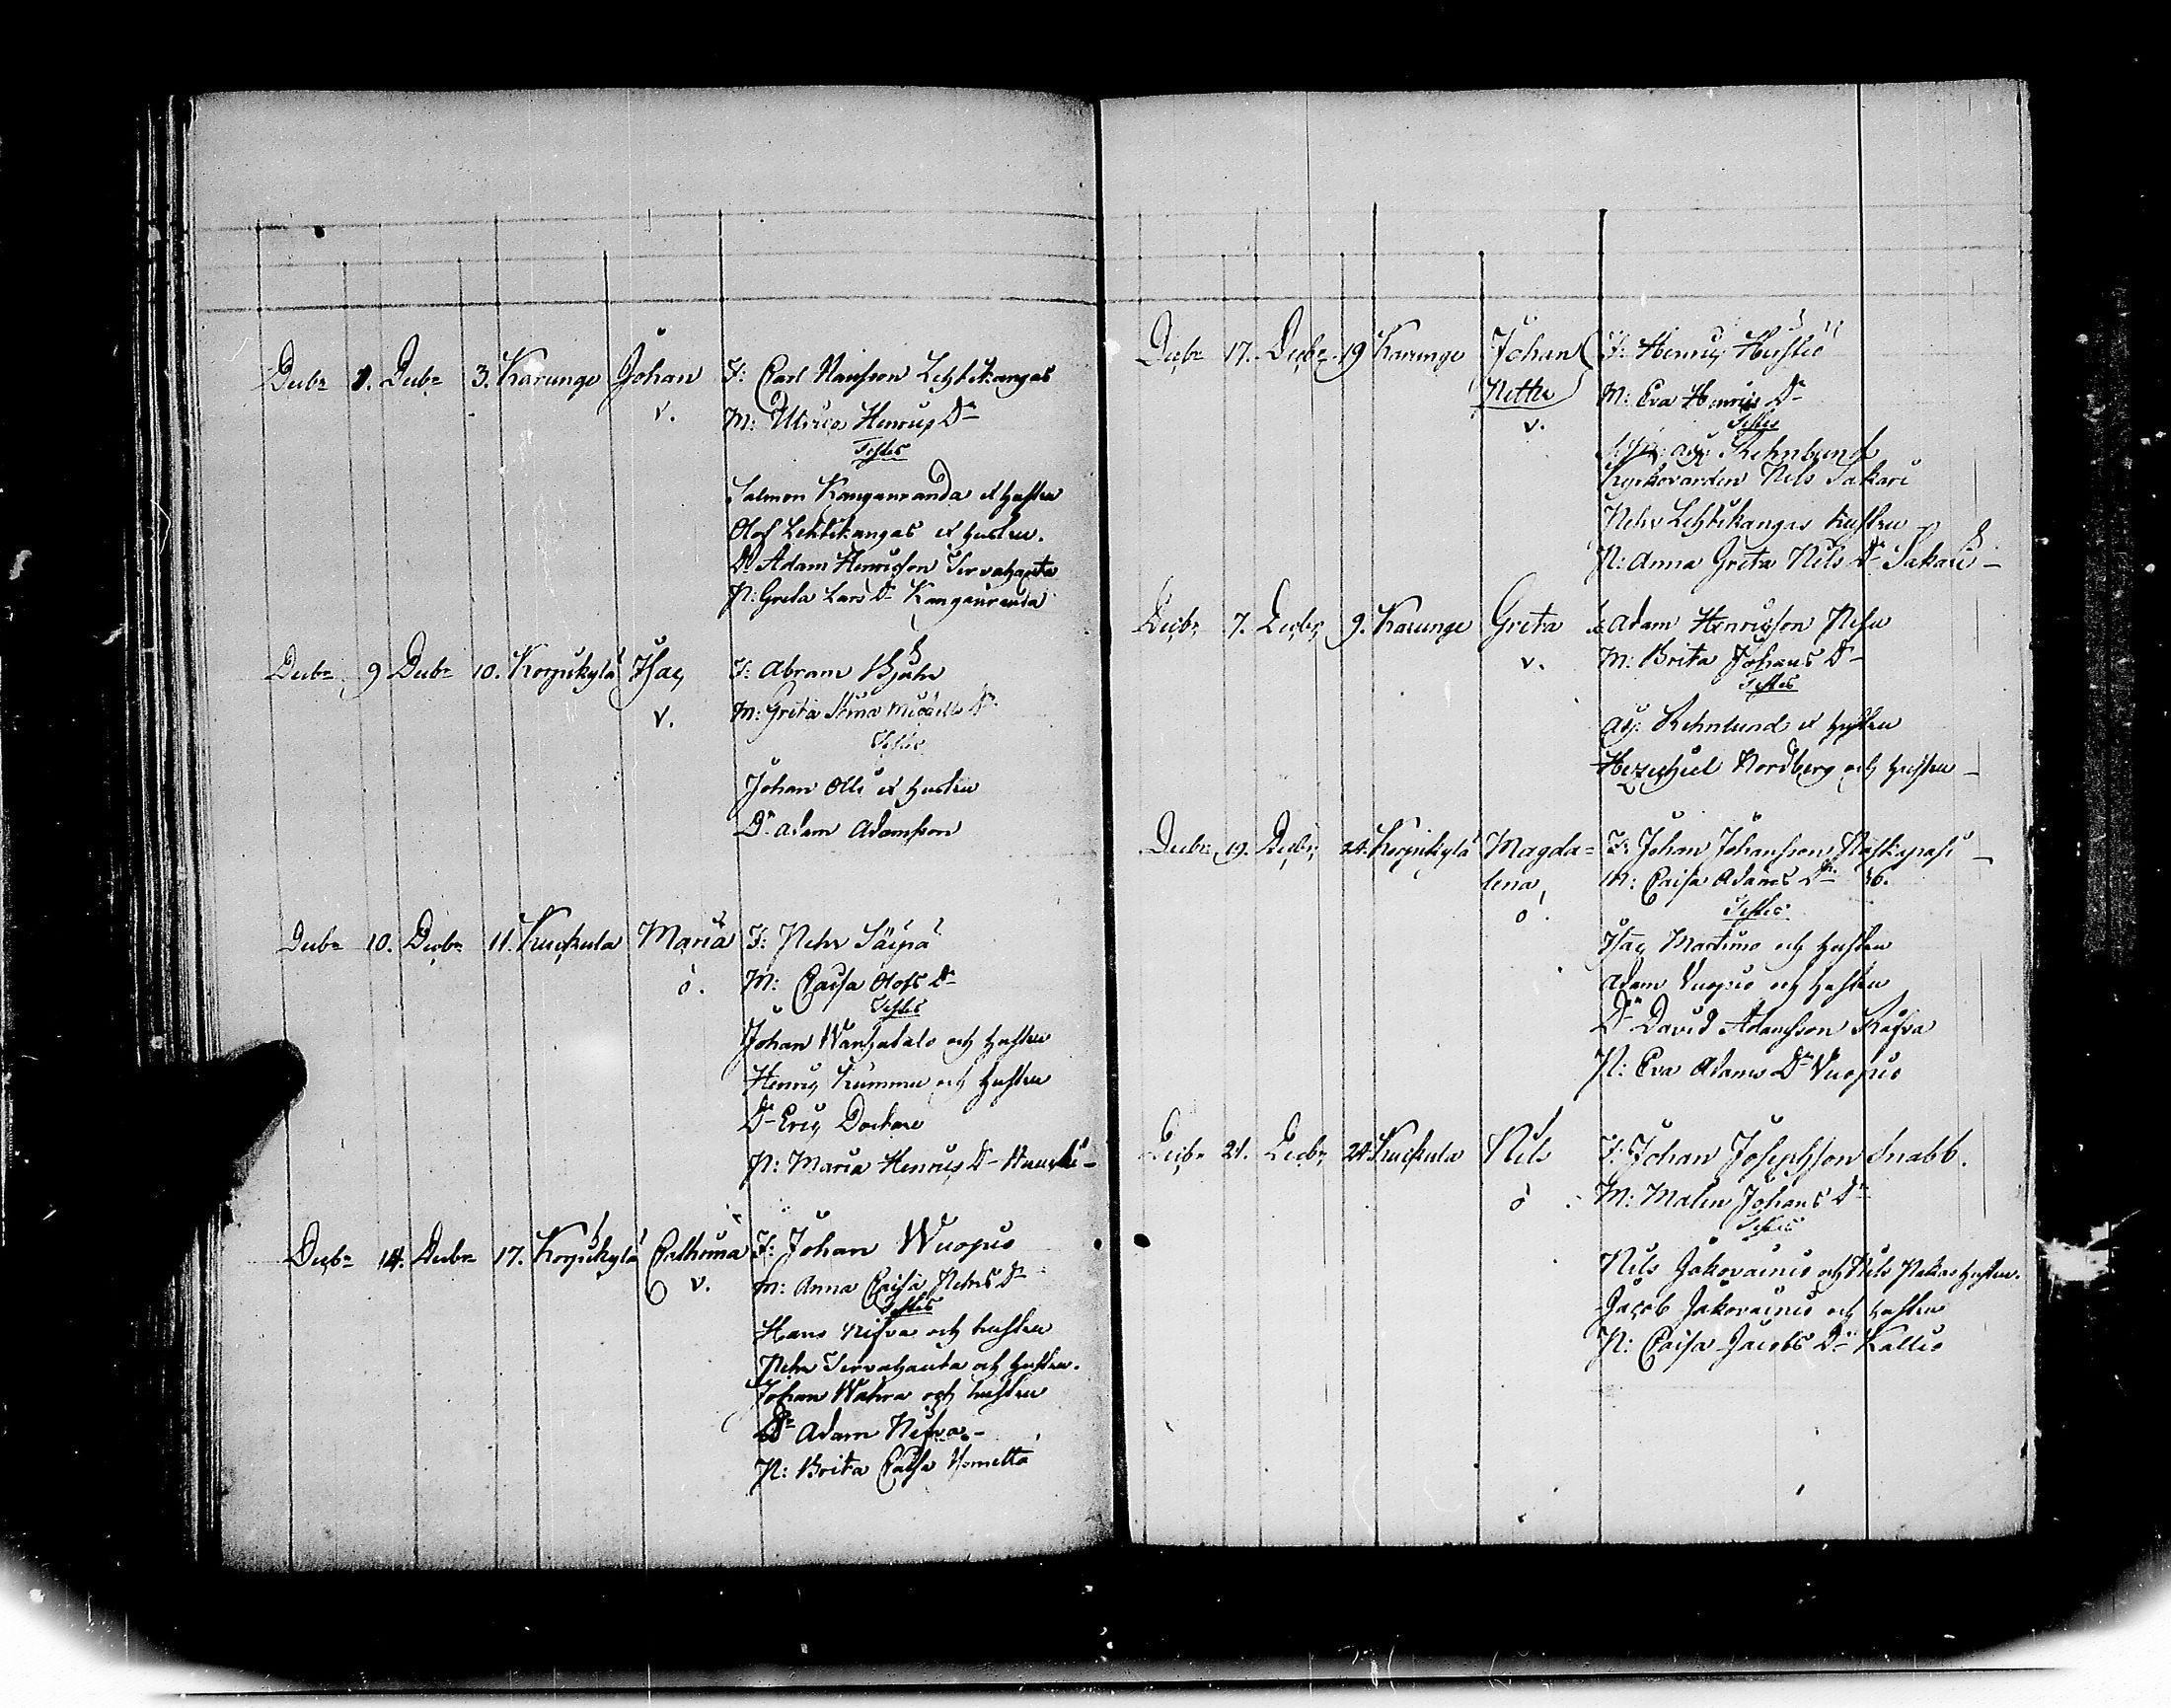 Decbr 1. Decbr 3. Karunge Johan F: Carl Hansson Lehtikangas
v. M: Ulrica Henrics Dr
Testes
Salmon Kanganranda et hustru
Olof Lehtikangas et hustru.
Dr Adam Henricsson Tervahauta
P: Greta Lars Dr Kanganranda
Decbr 9 Decbr 10. Korpikylä Isac F: Abram
v. M: Greta Stina Michells Dr
Testes
Johan Olli et hustru
Dr Adam Adamsson
Decbr 10. Decbr 11. Kuckula Maria F: Pehr Säipä
ö. M: Caisa Olofs Dr
Testes
Johan Wanhatalo och hustru
Henric Kummu och hustru
Dr Eric
P: Maria Henrics Dr
Decbr 14. Decbr 17. Korpikylä Cathrina F: Johan Wuopio
v. M: Anna Caisa Pehrs Dr
Testes
Hans Nifva och hustru
Pehr Tervahauta och hustru.
Johan och hustru
Dr Adam Nifva
P: Brita Caisa
Decbr 17. Decbr 19 Karunge Johan F: Henric
Petter M: Eva Henrics Dr
v. Testes
Rehnlund
Kyrkovärden Nils Sakari
Pehr Lehtikangas hustru
P: Anna Greta Nils Dr Sakari
Decbr 7. Decbr 9. Karunge Greta F: Adam Henricsson
v. M: Brita Johans Dr
Testes
Adj: Rehnlund et hustru
Hezechiel Nordberg och hustru
Decbr 19. Decbr 24. Korpikylä Magda= F: Johan Johansson
lena M: Caisa Adams Dr 36.
ö. Testes
Isac Martimo och hustru
Adam Vuopio och hustru
Dr David Adamsson
P: Eva Adams Dr Vuopio
Decbr 21. Decbr 24. Kuckula Nils F: Johan Josephsson Snabb.
ö M: Malin Johans Dr
Testes
Nils Jakovainio och Nils hustru.
Jacob Jakovainio och hustru
P: Caisa Jacobs Dr Kallio